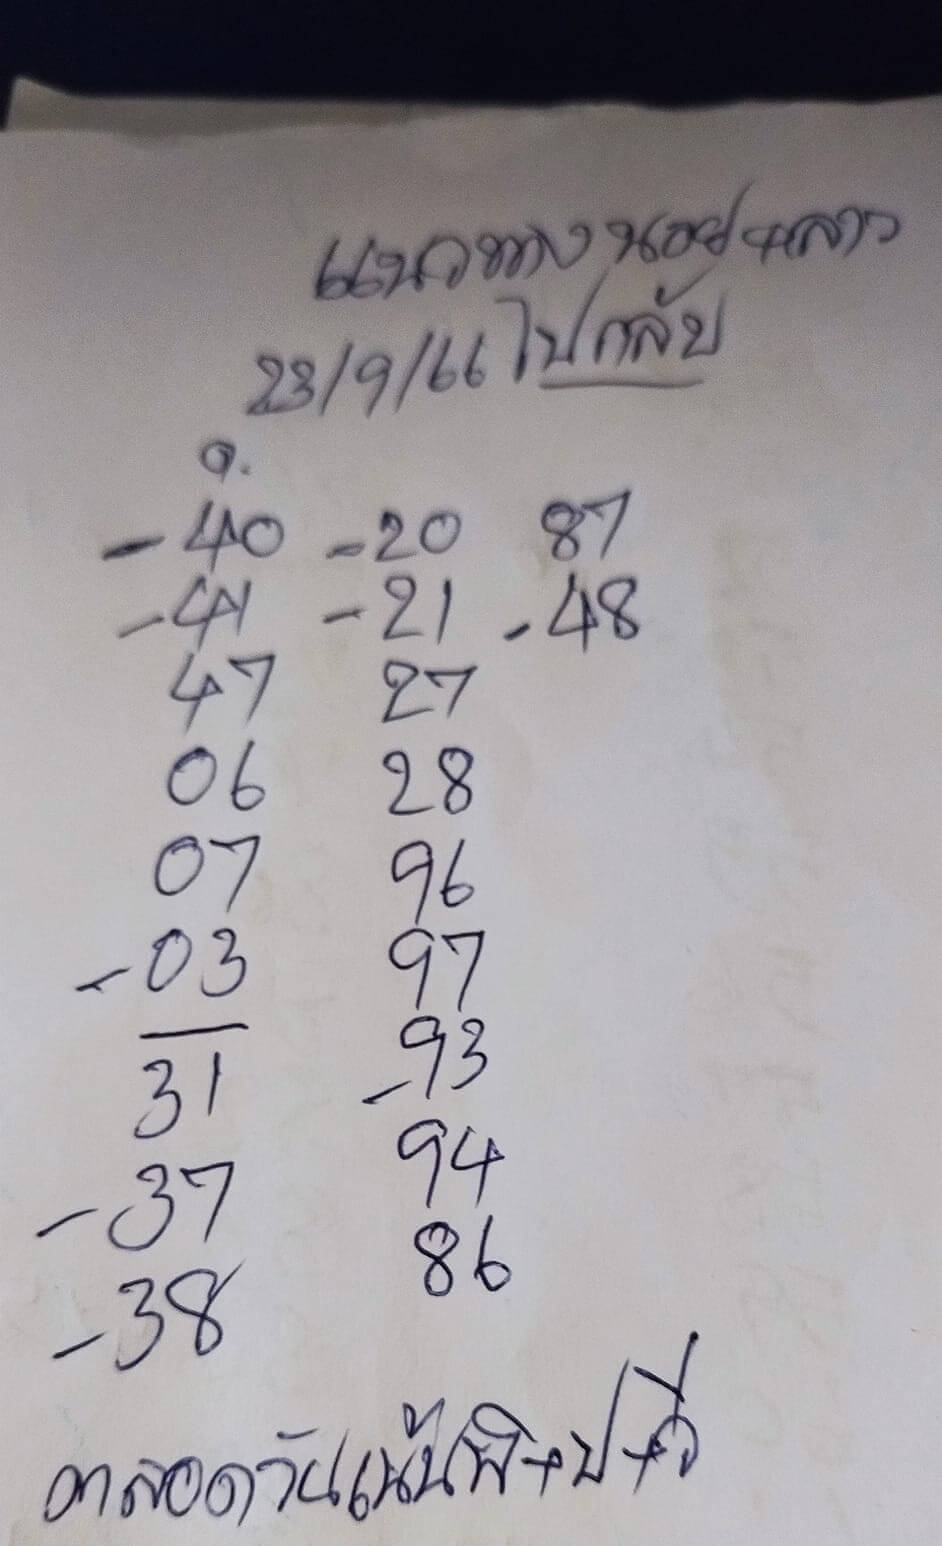 แนวทาง นอย+ลาว
23/9/66 ไปกลับ
ด.
-40 -20 87
-41 -21 -48
47 27
06 28
07 96
-03 97
31 -93
-37 94
-38 86
ตลอดวันเน้น